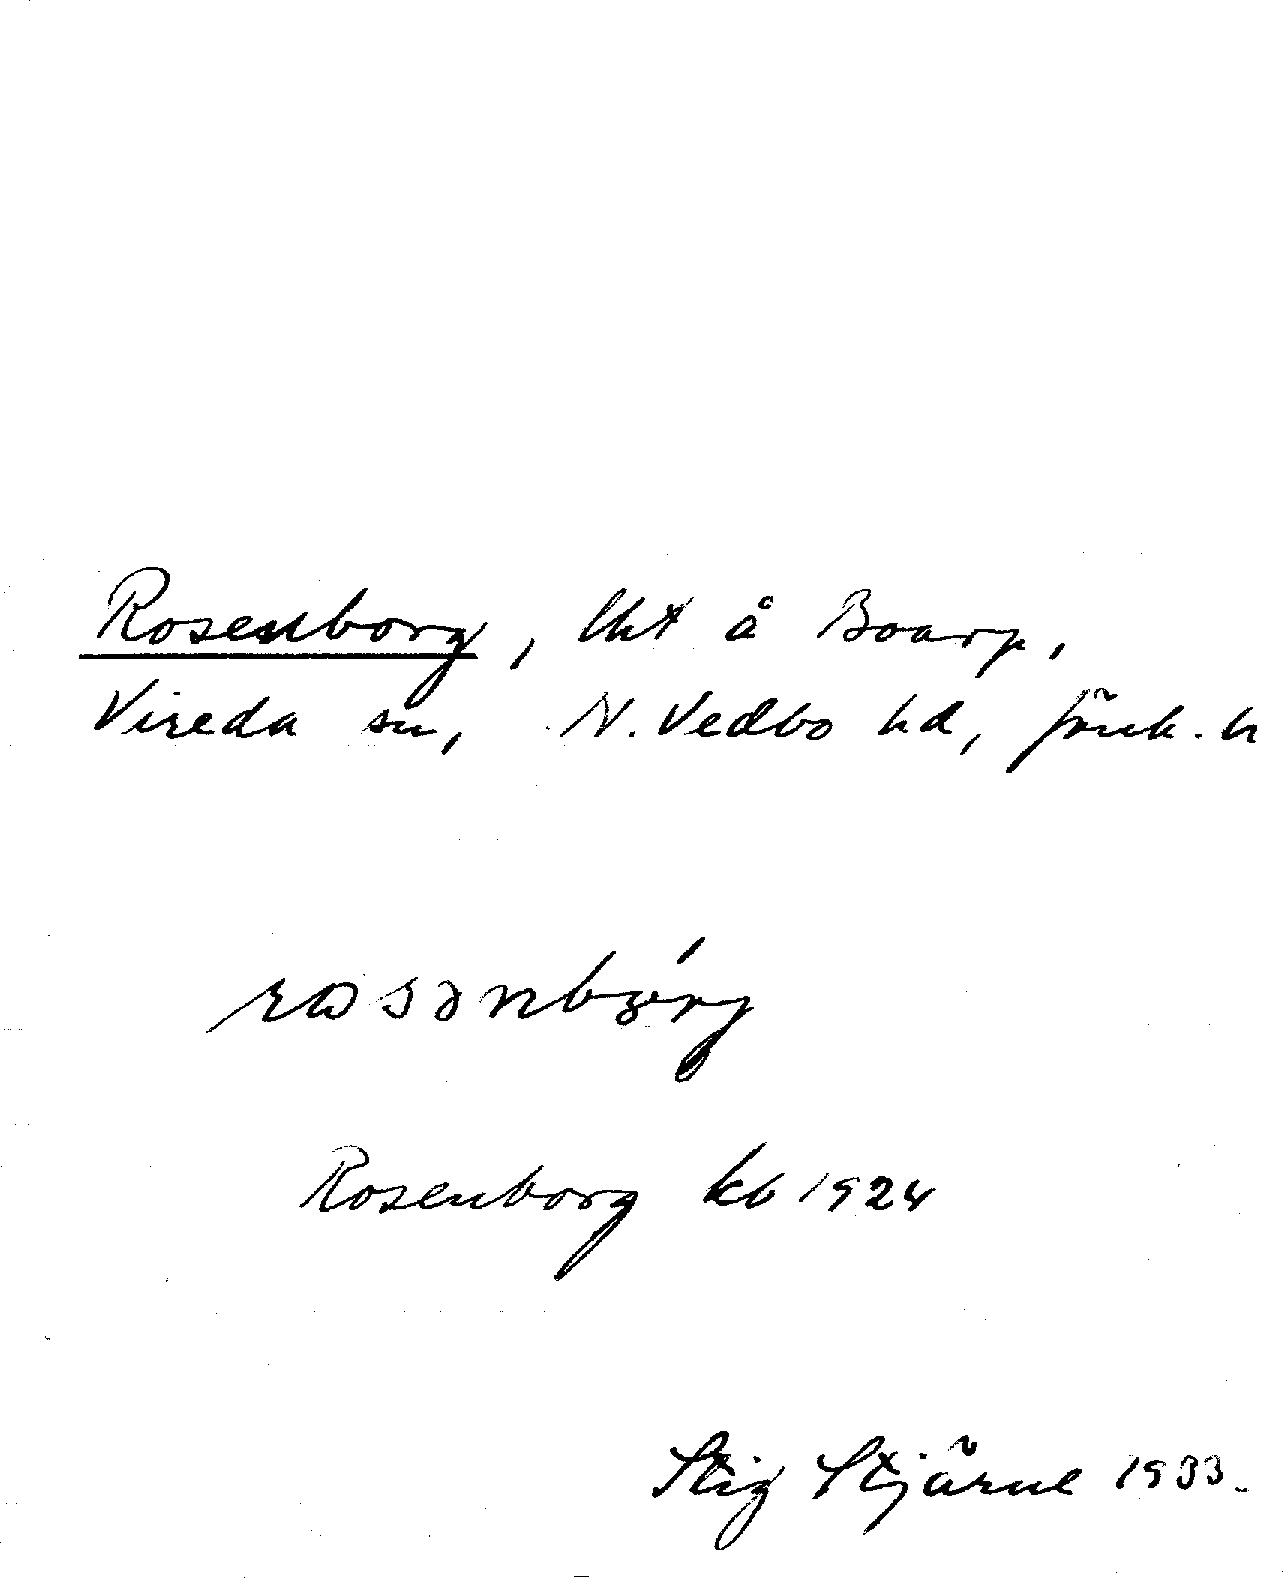 Rosenborg, lht å Boarp,
Vireda sn, N. Vedbo hd, Jönk. l.
rosənbórg
Rosenborg kb 1924
Stig Stjärne 1933.